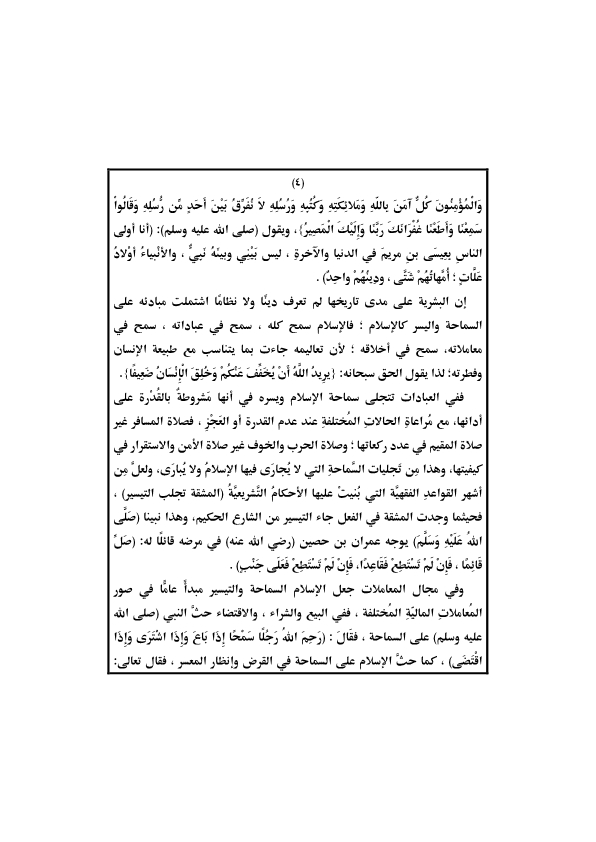 (٤)
وَالْمُؤْمِنُونَ كُلٌّ آمَنَ بِاللّهِ وَمَلائِكَتِهِ وَكُتُبِهِ وَرُسُلِهِ لاَ نُفَرِّقُ بَيْنَ أَحَدٍ مِّن رُّسُلِهِ وَقَالُواْ
سَمِعْنَا وَأَطَعْنَا غُفْرَانَكَ رَبَّنَا وَإِلَيْكَ الْمَصِيرُ}، ويقول (صلى الله عليه وسلم): (أنا أولى
الناسِ بِعِيسَى بنِ مريمَ في الدنيا والآخرةِ ، ليس بَيْنِي وبينهُ نَبيٌّ ، والأنْبياءُ أوْلادُ
عَلَّاتٍ ؛ أُمَّهاتُهُمْ شَتَّى ، ودِينُهُمْ واحِدٌ) .
إن البشرية على مدى تاريخها لم تعرف دينًا ولا نظامًا اشتملت مبادئه على
السماحة واليسر كالإسلام ؛ فالإسلام سمح كله ، سمح في عباداته ، سمح في
معاملاته، سمح في أخلاقه ؛ لأن تعاليمه جاءت بما يتناسب مع طبيعة الإنسان
وفطرته؛ لذا يقول الحق سبحانه: {يرِيدُ اللَّهُ أَنْ يُخَفِّفَ عَنْكُمْ وَخُلِقَ الْإِنْسَانُ ضَعِيفًا}.
ففي العبادات تتجلى سماحة الإسلام ويسره في أنها مَشروطةٌ بالقُدْرة على
أدائها، مع مُراعاةِ الحالاتِ المُختلفةِ عند عدم القدرة أو العَجْزِ ، فصلاة المسافر غير
صلاة المقيم في عدد ركعاتها ؛ وصلاة الحرب والخوف غير صلاة الأمن والاستقرار في
كيفيتها، وهذا مِن تَجليات السَّماحةِ التي لا يُجارَى فيها الإسلامُ ولا يُبارَى، ولعلَّ مِن
أشهر القواعدِ الفقهيَّة التي بُنيتْ عليها الأحكامُ التَّشريعيَّةُ (المشقة تجلب التيسير) ،
فحيثما وجدت المشقة في الفعل جاء التيسير من الشارع الحكيم، وهذا نبينا (صَلَّى
اللهُ عَلَيْهِ وَسَلَّمَ) يوجه عمران بن حصين (رضي الله عنه) في مرضه قائلًا له: (صَلِّ
قَائِمًا ، فَإِنْ لَمْ تَسْتَطِعْ فَقَاعِدًا، فَإِنْ لَمْ تَسْتَطِعْ فَعَلَى جَنْبٍ) .
وفي مجال المعاملات جعل الإسلام السماحة والتيسير مبدأً عامًّا في صور
المُعاملاتِ الماليَّةِ المُختلفة ، ففي البيع والشراء ، والاقتضاء حثَّ النبي (صلى الله
عليه وسلم) على السماحة ، فقَالَ : (رَحِمَ اللهُ رَجُلًا سَمْحًا إِذَا بَاعَ وَإِذَا اشْتَرَى وَإِذَا
اقْتَضَى) ، كما حثَّ الإسلام على السماحة في القرض وإنظار المعسر ، فقال تعالى: